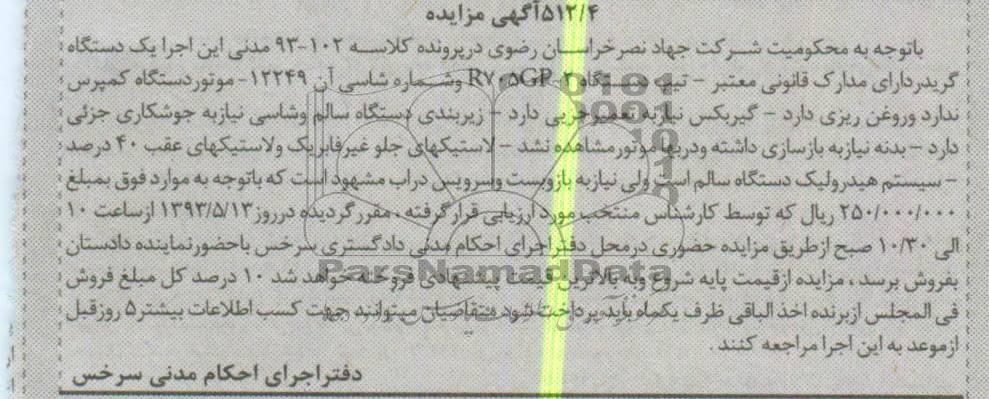 ۵۱۲/۴آگهی مزایده
باتوجه به محکومیت شرکت جهاد نصر خراسان رضوی درپرونده کلاسه ۱۰۲-۹۳ مدنی این اجرا یک دستگاه
گریدردارای مدارک قانونی معتبر – تیپ دستگاه R۷۰۵GP-۲ وشماره شاسی آن ۱۲۲۴۹- موتوردستگاه کمپرس
ندارد وروغن ریزی دارد – گیربکس نیازبه تعمیرجزیی دارد – زیربندی دستگاه سالم وشاسی نیازبه جوشکاری جزئی
دارد – بدنه نیازبه بازسازی داشته ودربها موتورمشاهده نشد – لاستیکهای جلو غیرفابریک ولاستیکهای عقب ۴۰ درصد
– سیستم هیدرولیک دستگاه سالم است ولی نیازبه بازوبست وسرویس دراب مشهود است که باتوجه به موارد فوق بمبلغ
۲۵۰/۰۰۰/۰۰۰ ریال که توسط کارشناس منتخب مورد ارزیابی قرارگرفته ، مقررگردیده درروز ۱۳۹۳/۵/۱۳ ازساعت ۱۰
الی ۱۰/۳۰ صبح ازطریق مزایده حضوری درمحل دفتراجرای احکام مدنی دادگستری سرخس باحضورنماینده دادستان
بفروش برسد ، مزایده ازقیمت پایه شروع وبه بالاترین قیمت پیشنهادی فروخته خواهد شد ۱۰ درصد کل مبلغ فروش
فی المجلس ازبرنده اخذ الباقی ظرف یکماه باید پرداخت شود متقاضیان میتوانند جهت کسب اطلاعات بیشتر ۵ روزقبل
ازموعد به این اجرا مراجعه کنند .
دفتراجرای احکام مدنی سرخس
ParsNamadData